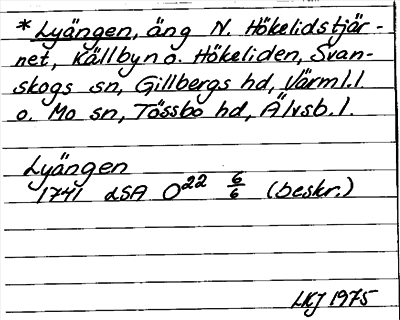 * Lyängen, äng N. Hökelidstjär-
net, Källbyn o. Hökeliden, Svan-
skogs sn, Gillbergs hd, Värml.l.
o. Mo sn, Tössbo hd, Älvsb.l.
Lyängen
1741 LSA O22 6/6 (beskr.)
LKJ 1975